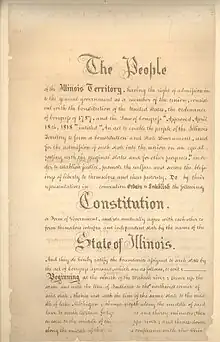 The People
of the Illinois Territory, having the right of admission in
to the general government as a member of the union, consist
ent with the constitution of the United States, the ordinance
of Congress of 1787, and the law of Congress "Approved April
18th, 1818," entitled "An act to enable the people of the Illinois
Territory to form a Constitution and State Government, and
for the admission of such state into the union on an equal
footing with the original states and for other purposes," in or
der to establish justice, promote the welfare and secure the bless
ings of liberty to themselves and their posterity, Do by their
representatives in convention Ordain & Establish the following
Constitution.
or Form of Government, and do mutually agree with each other to
form themselves into a free and independent state by the name of the
State of Illinois.
And they do hereby ratify the boundaries assigned to such state by
the act of Congress aforesaid which are as follows, to wit:
Beginning at the mouth of the Wabash river, thence up the
same and with the line of Indiana to the northwest corner of
said state, thence east with the line of the same state to the mid
dle of lake Michigan, thence north along the middle of said
lake to north latitude forty and thirty minutes, then
to the middle of the
along the middle of confluence with the Ohio